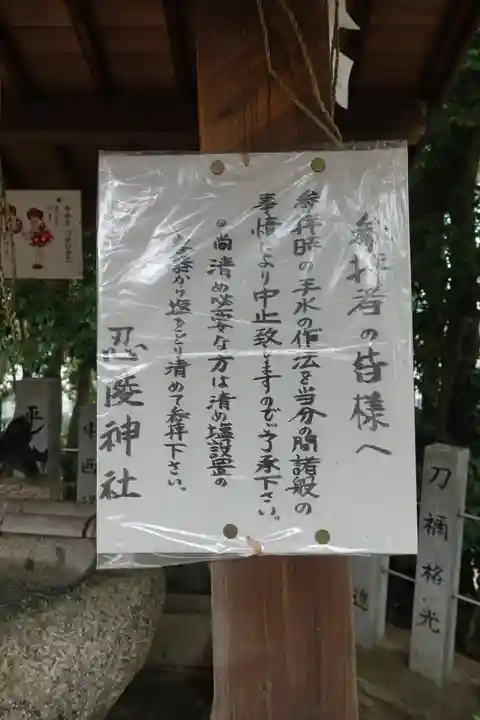 参拝者の皆様へ
参拝時の手水の作法を当分の間諸般の
事情により中止致しますのでご了承下さい。
◎尚清め必要な方は清め塩設置の
お塩をとり清めて参拝下さい。
忍陵神社
刀禰格光